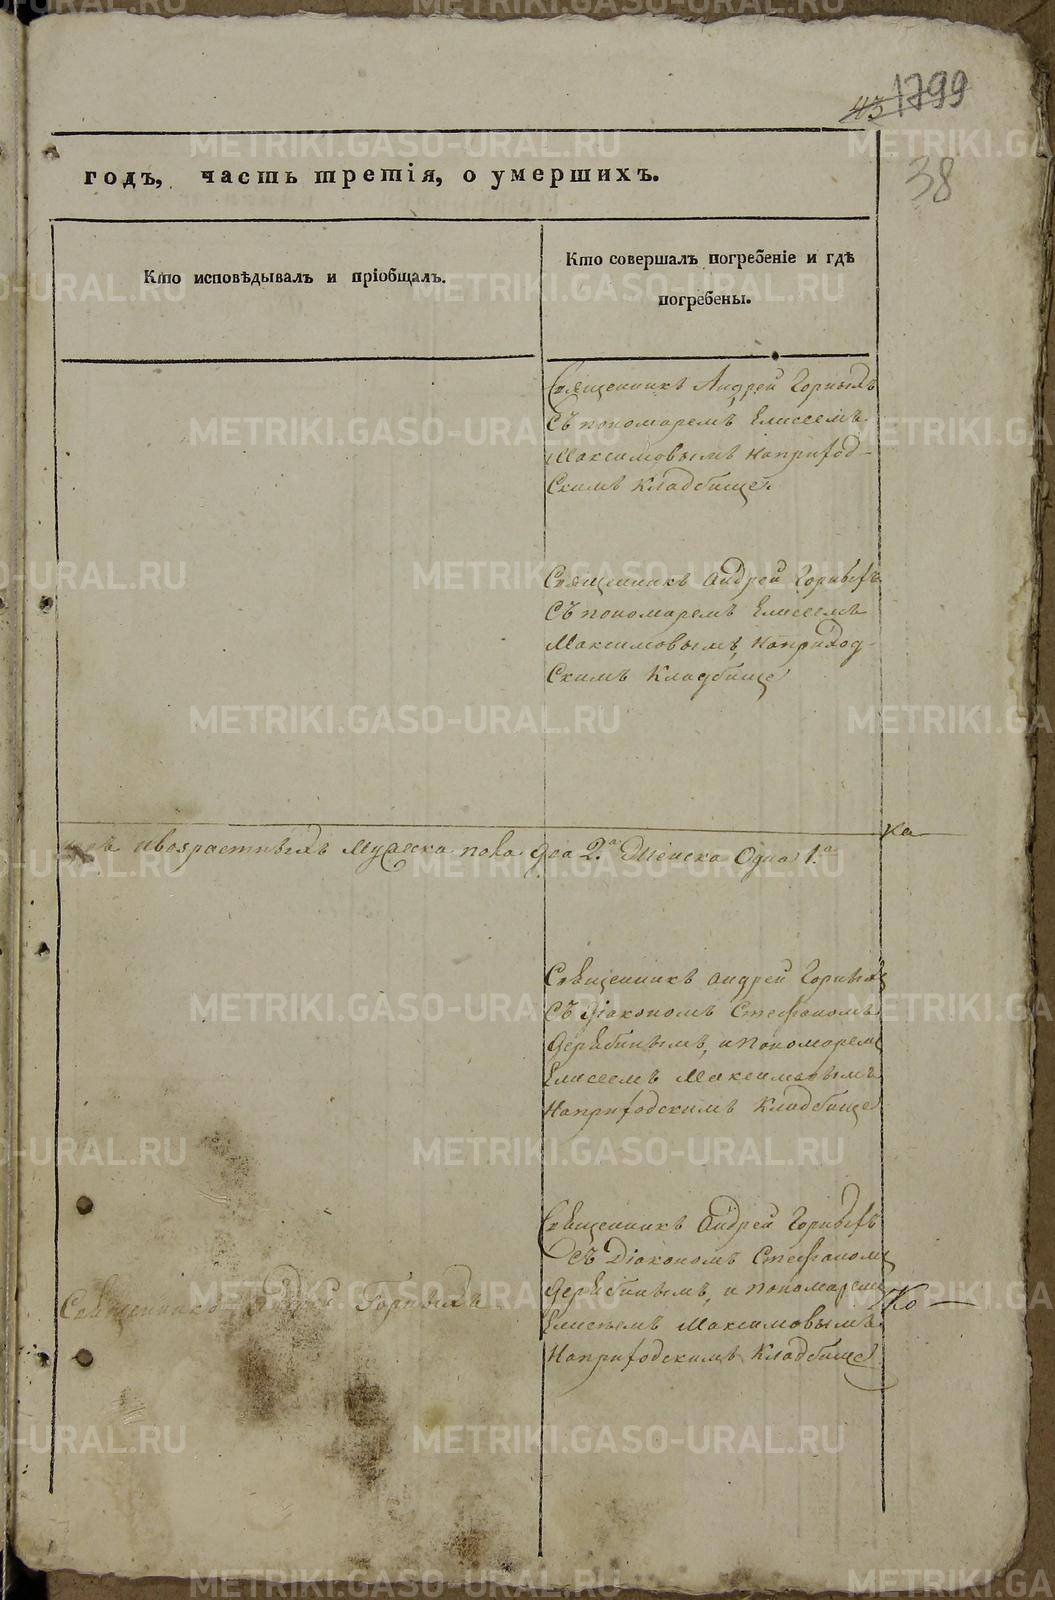 1799
43
38
годъ, часть третія, о умершихъ.
Кто исповѣдывалъ и пріобщалъ.
Кто совершалъ погребеніе и гдѣ
погребены.
Священникъ Андрей Горныхъ
Съ пономаремъ Елисеемъ
Максимовымъ Наприход-
Скимъ Кладбище
Священникъ Андрей Горныхъ
Съ пономаремъ Елисеемъ
Максимовымъ, Наприход-
Скимъ Кладбище
ка
ивозрастныхъ Мужеска пола два 2.а Женска Одна 1.а
Священникъ Андрей Горныхъ
Съ Діакономъ Стефаномъ
Дерябинымъ, и Пономаремъ
Елисеемъ Максимовымъ
Наприходскимъ Кладбище
Священникъ Андрей Горныхъ
Священникъ Андрей Горныхъ
Съ Діакономъ Стефаномъ
Дерябинымъ, и пономаремъ
Елисѣемъ Максимовымъ
Наприходскимъ Кладбище
Ко
METRIKI.GASO-URAL.RU